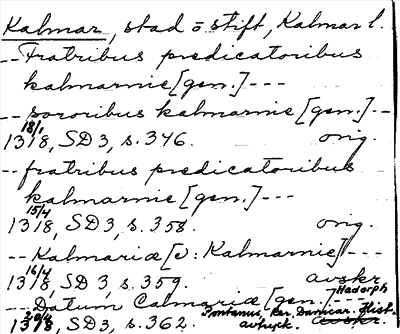 Kalmar, stad o stift, Kalmar l.
-- Fratribus predicatoribus
kalmarnie [gen.] ---
-- sororibus kalmarnie [gen.] --
18/1
1318, SD 3, s. 346. orig.
-- fratribus predicatoribus
kalmarnie [gen.] ---
15/4
1318, SD 3, s. 358. orig.
-- Kalmariæ [ɔ: Kalmarnie] --
16/4
1318, SD 3, s. 359. avskr.
Hadorph
--- Datum Calmariæ [gen.] ---
20/4 Pontanus, Rer. Danicar. Hist.
1318, SD 3, s. 362. avtryck. avskr.